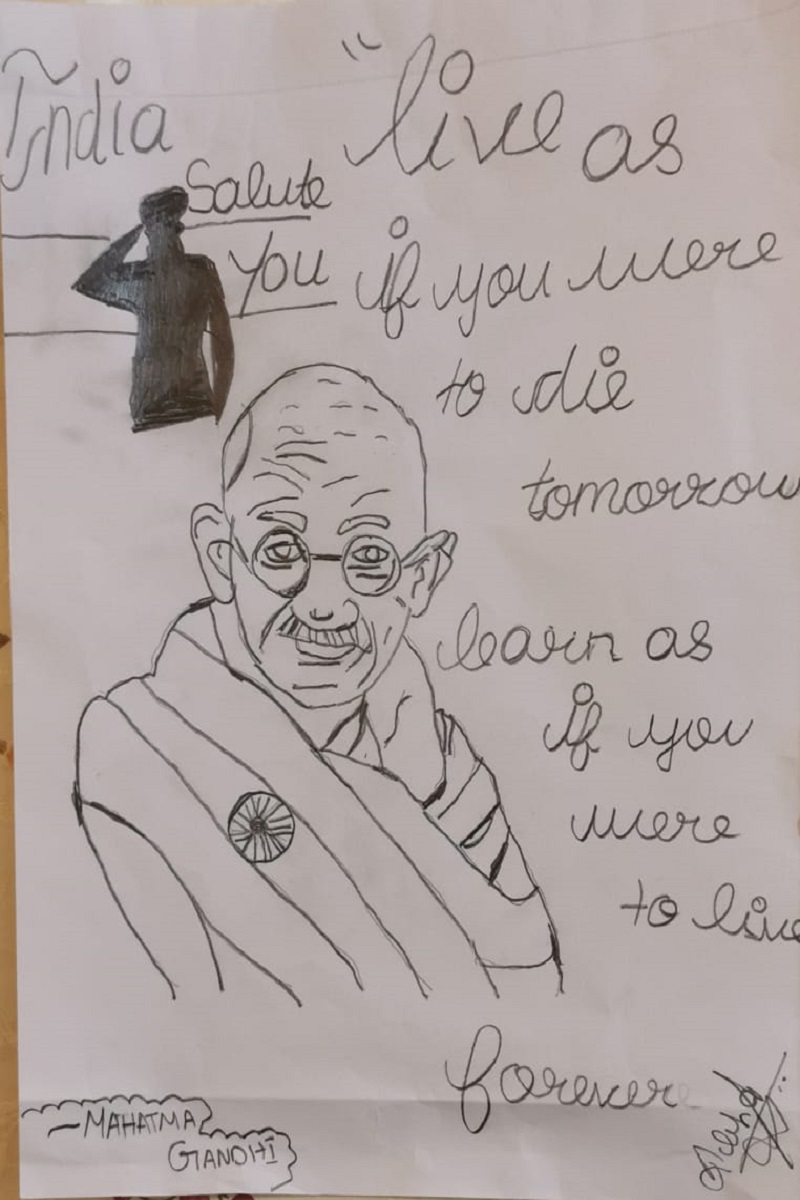 India
Salute
You
"live as
if you were
to die
tomorrow
learn as
if you
were
to live
forever
- MAHATMA
GANDHI